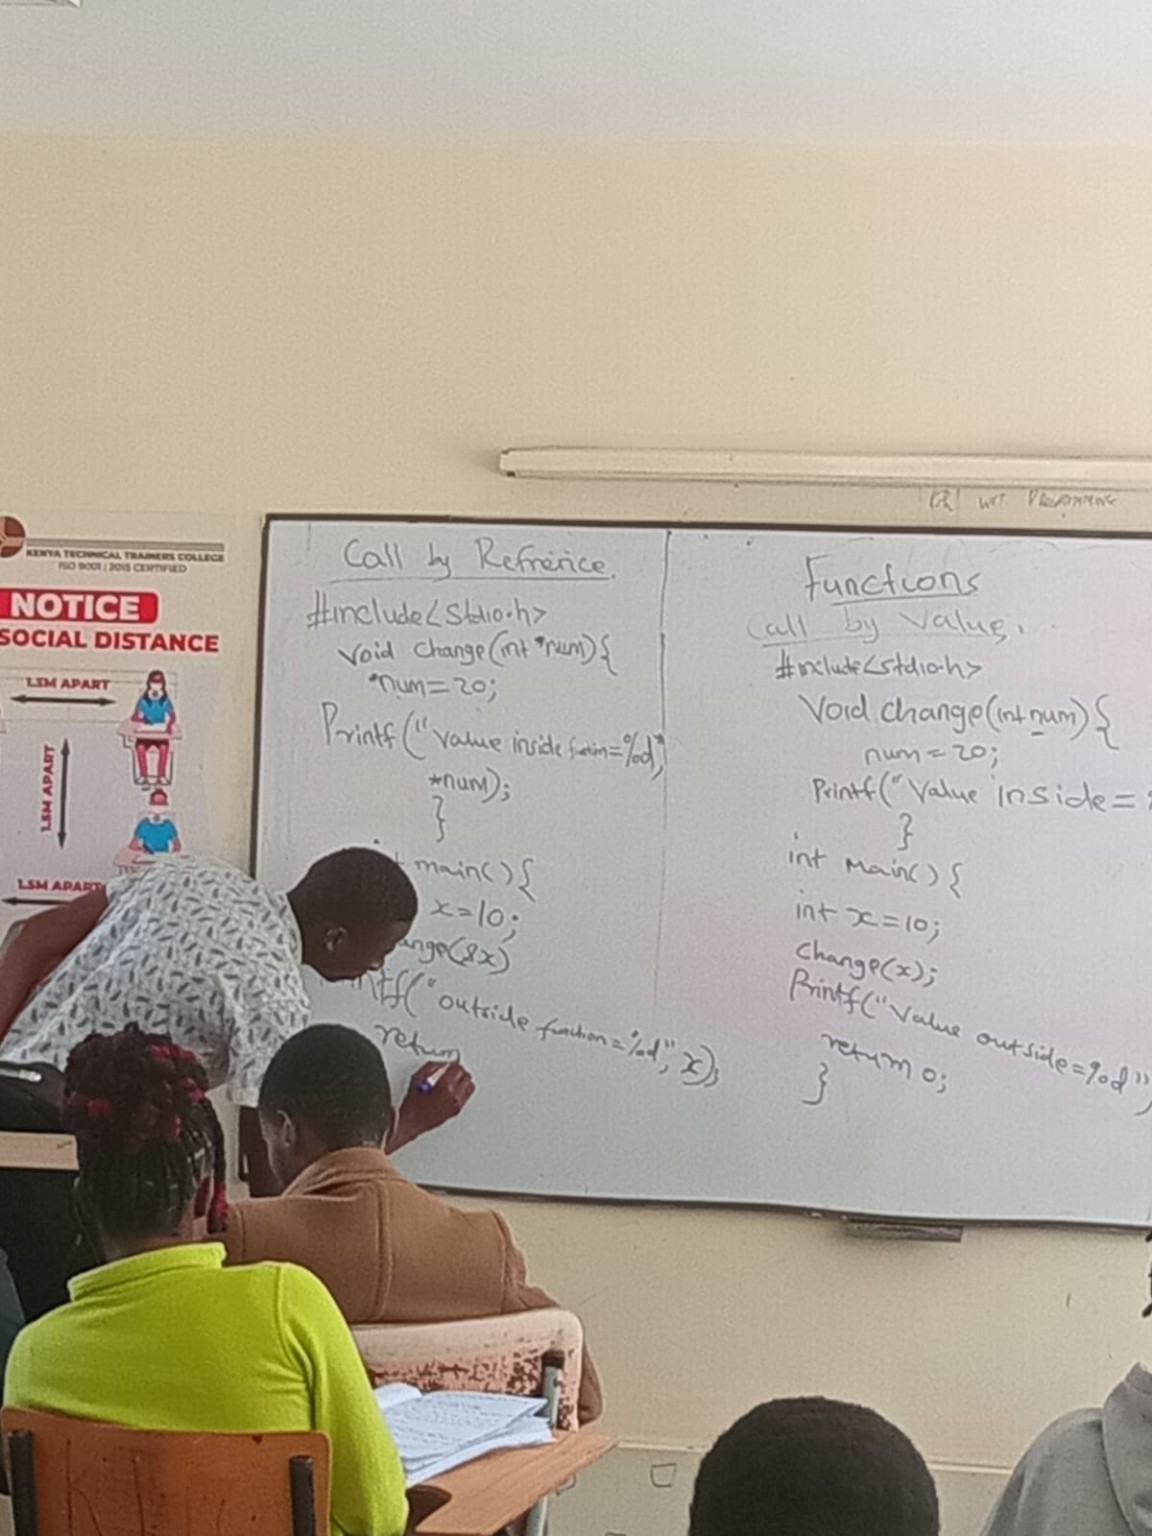 KENYA TECHNICAL TRAINERS COLLEGE
ISO 9001 : 2015 CERTIFIED
NOTICE
SOCIAL DISTANCE
1.5M APART
1.5M APART
1.5M APART
Call by Refrence.
#include<stdio.h>
void change(int *num){
*num=20;
Printf("Value inside function=%d",
*num);
}
main(){
x=10;
ange(&x)
ntf("outside function=%d", x);
return
Functions
Call by Value.
#include<stdio.h>
Void change(int num){
num=20;
Printf("Value inside=
}
int Main(){
int x=10;
Change(x);
Printf("Value outside=%d"
return 0;
}